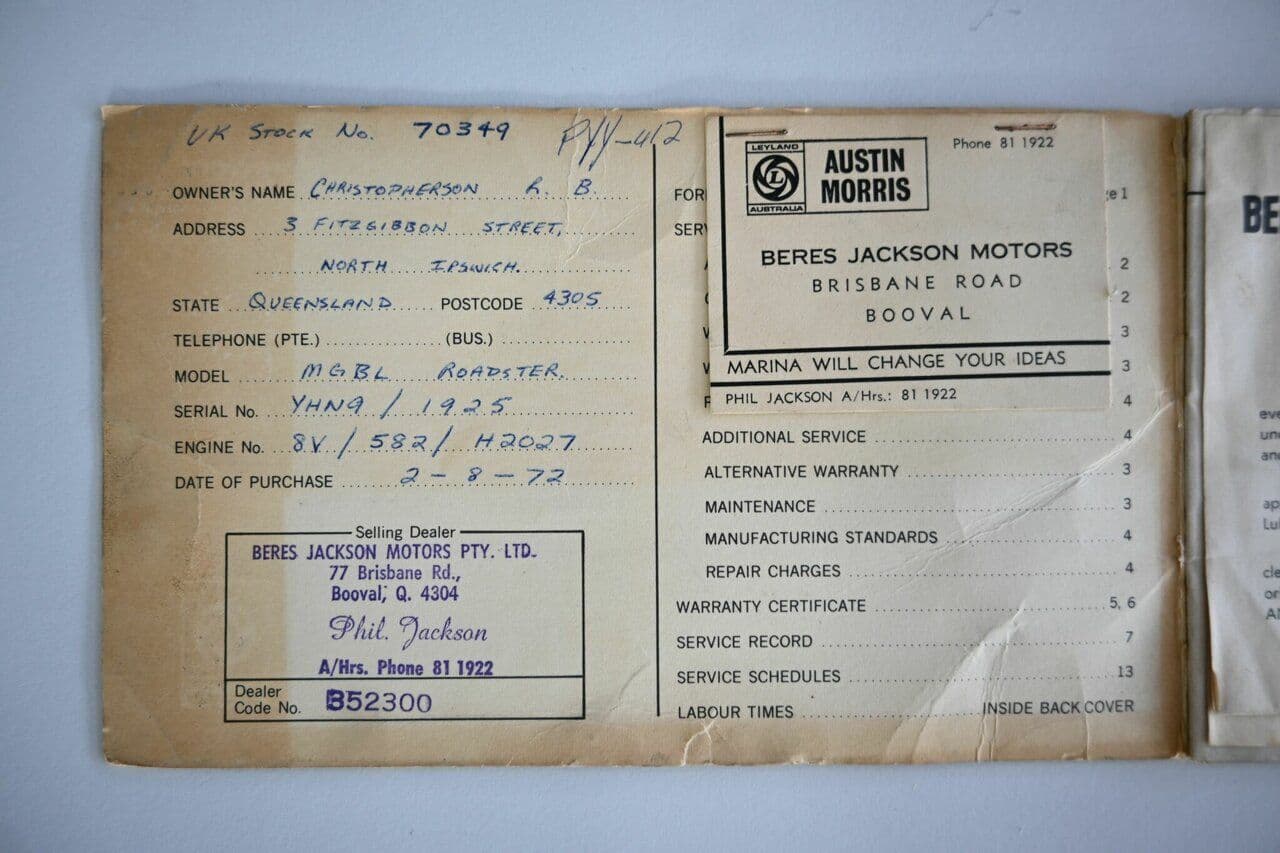 UK STOCK No. 70349 PYY-412
OWNER'S NAME CHRISTOPHERSON R. B.
ADDRESS 3 FITZGIBBON STREET,
NORTH IPSWICH.
STATE QUEENSLAND POSTCODE 4305
TELEPHONE (PTE.) (BUS.)
MODEL MGBL ROADSTER.
SERIAL No. YHN9/1925
ENGINE No. 8V/582/H2027
DATE OF PURCHASE 2-8-72
Selling Dealer
BERES JACKSON MOTORS PTY. LTD.
77 Brisbane Rd.,
Booval, Q. 4304
Phil. Jackson
A/Hrs. Phone 81 1922
Dealer
Code No. B52300
LEYLAND
L
AUSTRALIA
AUSTIN
MORRIS
Phone 81 1922
BERES JACKSON MOTORS
BRISBANE ROAD
BOOVAL
MARINA WILL CHANGE YOUR IDEAS
PHIL JACKSON A/Hrs.: 81 1922
FOR e 1
SER
2
2
3
3
4
ADDITIONAL SERVICE 4
ALTERNATIVE WARRANTY 3
MAINTENANCE 3
MANUFACTURING STANDARDS 4
REPAIR CHARGES 4
WARRANTY CERTIFICATE 5, 6
SERVICE RECORD 7
SERVICE SCHEDULES 13
LABOUR TIMES INSIDE BACK COVER
BE
eve
und
and
ap
Lu
cle
or